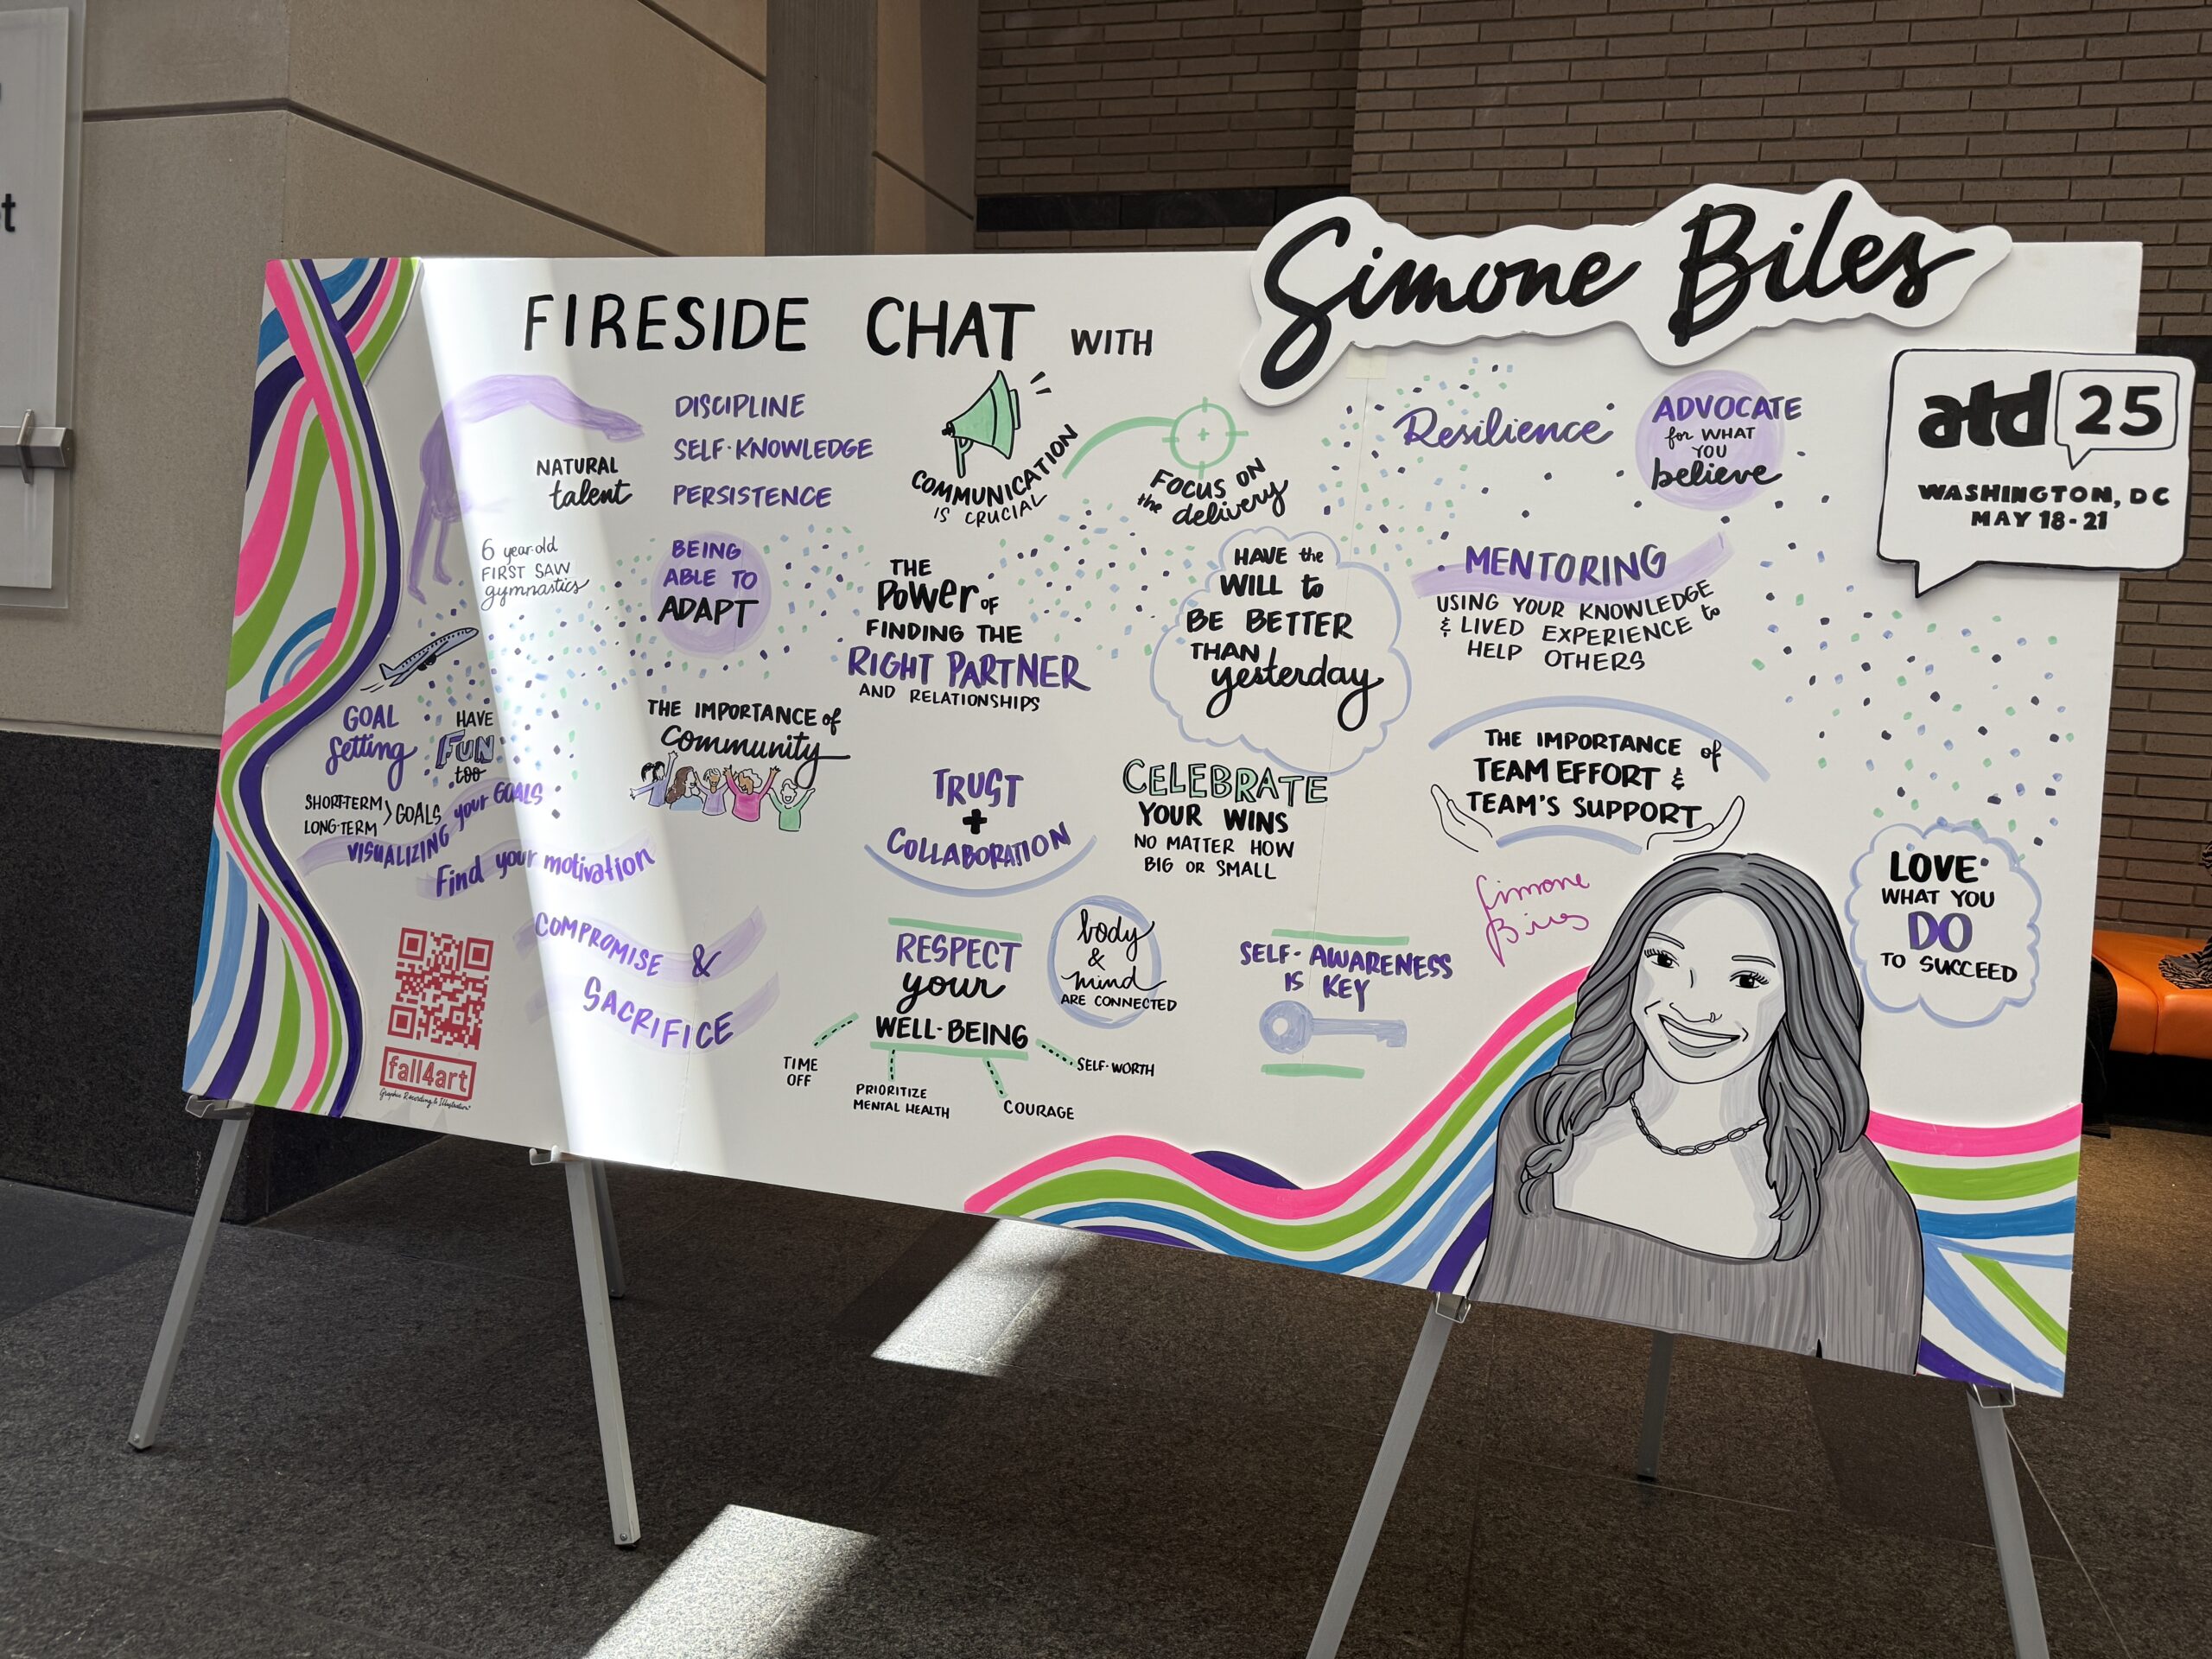 FIRESIDE CHAT WITH
Simone Biles
atd 25
WASHINGTON, DC
MAY 18-21
NATURAL
talent
DISCIPLINE
SELF-KNOWLEDGE
PERSISTENCE
COMMUNICATION
IS CRUCIAL
FOCUS ON
the delivery
Resilience
ADVOCATE
for WHAT
YOU
believe
6 year-old
FIRST SAW
gymnastics
BEING
ABLE TO
ADAPT
THE
POWER OF
FINDING THE
RIGHT PARTNER
AND RELATIONSHIPS
HAVE the
WILL to
BE BETTER
THAN
yesterday
MENTORING
USING YOUR KNOWLEDGE
& LIVED EXPERIENCE to
HELP OTHERS
GOAL
setting
HAVE
FUN
too
SHORT-TERM
LONG-TERM
GOALS
VISUALIZING your GOALS
Find your motivation
THE IMPORTANCE of
community
TRUST
+
COLLABORATION
CELEBRATE
YOUR WINS
NO MATTER HOW
BIG OR SMALL
THE IMPORTANCE of
TEAM EFFORT &
TEAM'S SUPPORT
LOVE
WHAT YOU
DO
TO SUCCEED
COMPROMISE &
SACRIFICE
RESPECT
your
WELL-BEING
TIME
OFF
PRIORITIZE
MENTAL HEALTH
COURAGE
SELF-WORTH
body
&
mind
ARE CONNECTED
SELF-AWARENESS
IS KEY
Simone
Biles
fall4art
Graphic Recording & Illustration
t